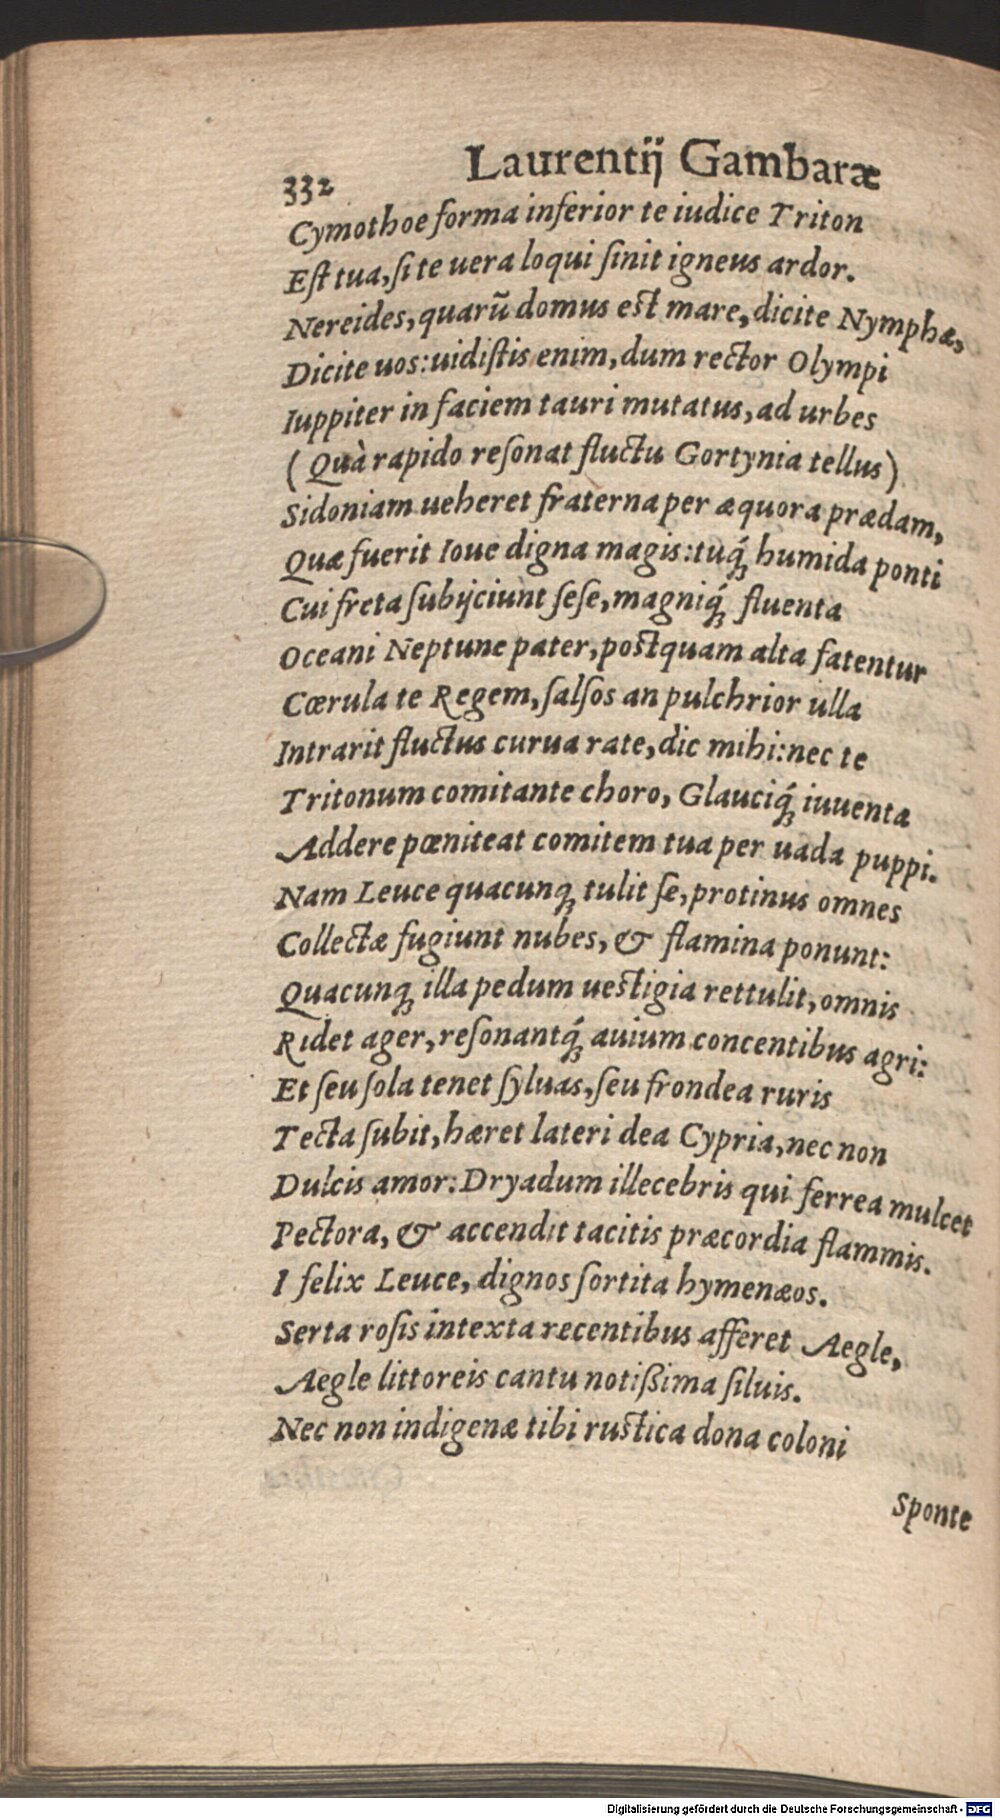 332 Laurentij Gambaræ
Cymothoe forma inferior te iudice Triton
Eſt tua, ſi te uera loqui ſinit igneus ardor.
Nereides, quarū domus eſt mare, dicite Nymphæ,
Dicite uos: uidiſtis enim, dum rector Olympi
Iuppiter in faciem tauri mutatus, ad urbes
(Quà rapido reſonat fluctu Gortynia tellus)
Sidoniam ueheret fraterna per æquora prædam,
Quæ fuerit Ioue digna magis: tuq́; humida ponti
Cui freta ſubijciunt ſeſe, magniq́; fluenta
Oceani Neptune pater, poſtquam alta fatentur
Cœrula te Regem, ſalſos an pulchrior ulla
Intrarit fluctus curua rate, dic mihi: nec te
Tritonum comitante choro, Glauciq́; iuuenta
Addere pœniteat comitem tua per uada puppi.
Nam Leuce quacunq; tulit ſe, protinus omnes
Collectæ fugiunt nubes, & flamina ponunt:
Quacunq; illa pedum ueſtigia rettulit, omnis
Ridet ager, reſonantq́; auium concentibus agri:
Et ſeu ſola tenet ſyluas, ſeu frondea ruris
Tecta ſubit, hæret lateri dea Cypria, nec non
Dulcis amor: Dryadum illecebris qui ferrea mulcet
Pectora, & accendit tacitis præcordia flammis.
I felix Leuce, dignos ſortita hymenæos.
Serta roſis intexta recentibus afferet Aegle,
Aegle littoreis cantu notißima ſiluis.
Nec non indigenæ tibi ruſtica dona coloni
Sponte
Digitalisierung gefördert durch die Deutsche Forschungsgemeinschaft - DFG